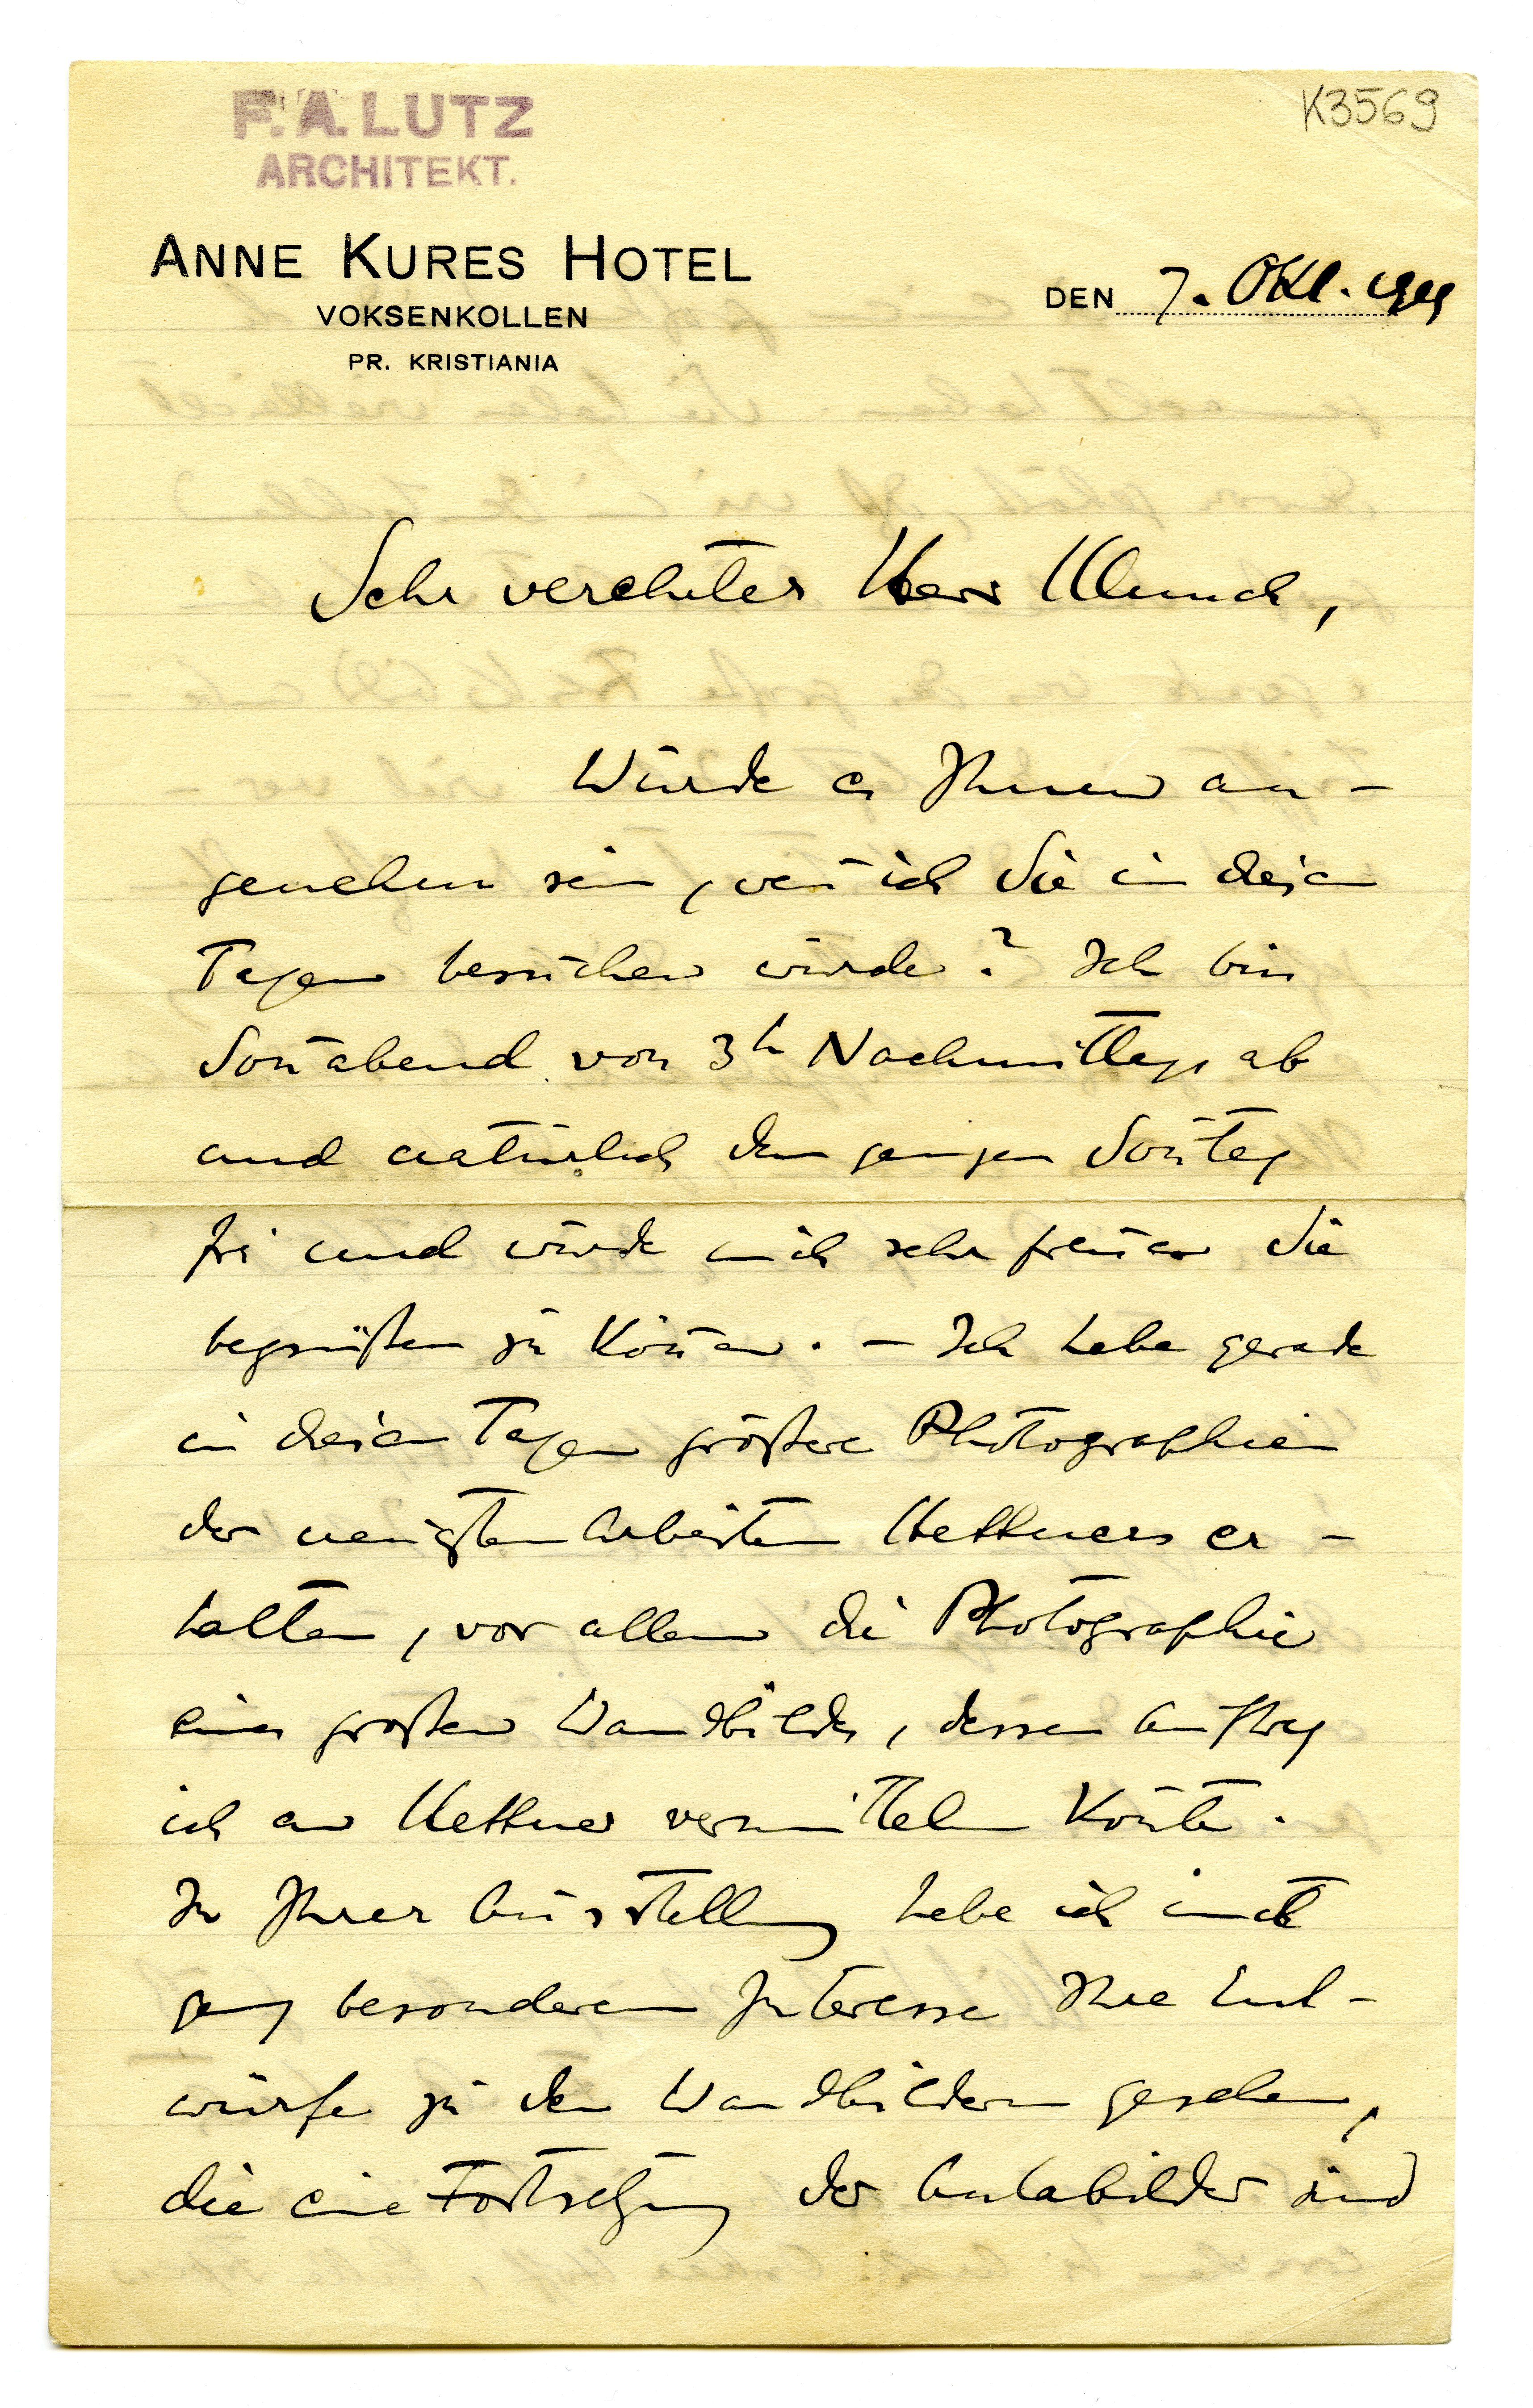 F. A. LUTZ
ARCHITEKT.
K3569
ANNE KURES HOTEL
VOKSENKOLLEN
PR. KRISTIANIA
DEN 7. Okt.
Sehr verehrter Herr Munch,
Würde es Ihnen an-
genehm sein, wen̄ ich Sie in diesen
Tagen besuchen würde? Ich bin
Son̄abend von 3h Nachmittags ab
und natürlich den ganzen Son̄tag
frei und würde mich sehr freuen Sie
begrüßen zu kön̄en. – Ich habe gerade
in diesen Tagen größere Photographien
der neusten Arbeiten Hettners er-
halten, vor allem die Photographie
eines großen Wandbildes, dessen Auftrag
ich an Hettner vermitteln kon̄te.
In Ihrer Ausstellung habe ich mit
ganz besonderem Interesse Ihre Ent-
würfe zu den Wandbildern gesehen,
die eine Fortsetzung der Aulabilder sind